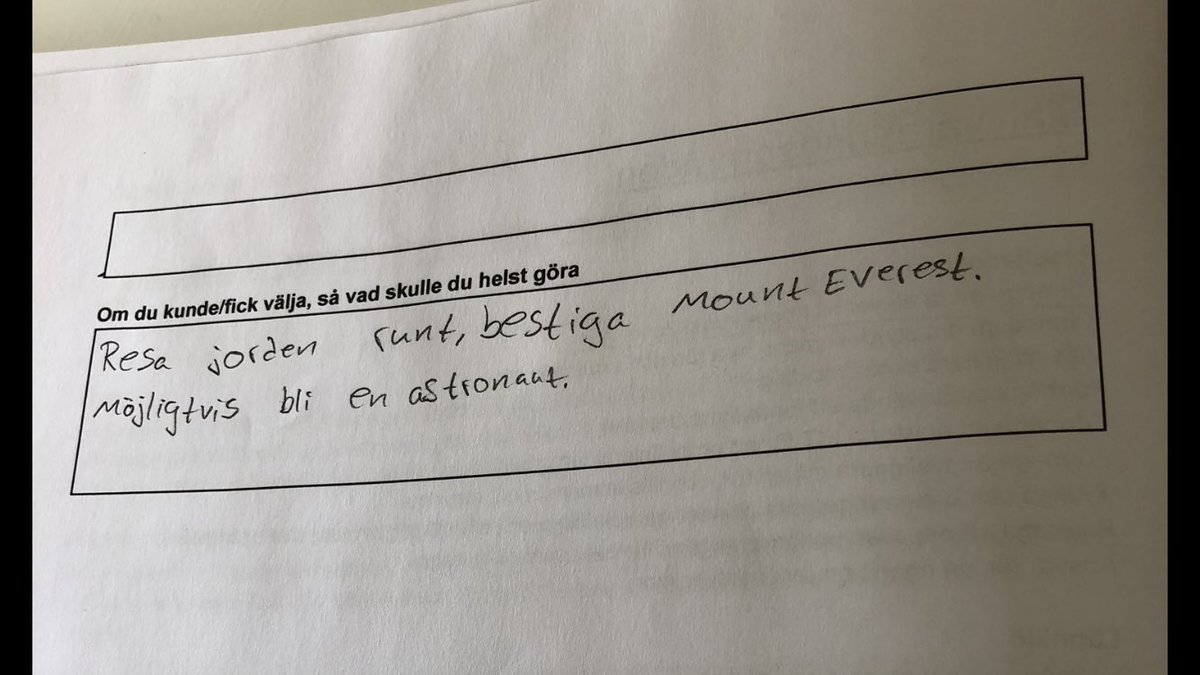 Om du kunde/fick välja, så vad skulle du helst göra
Resa jorden runt, bestiga Mount Everest.
Möjligtvis bli en astronaut.